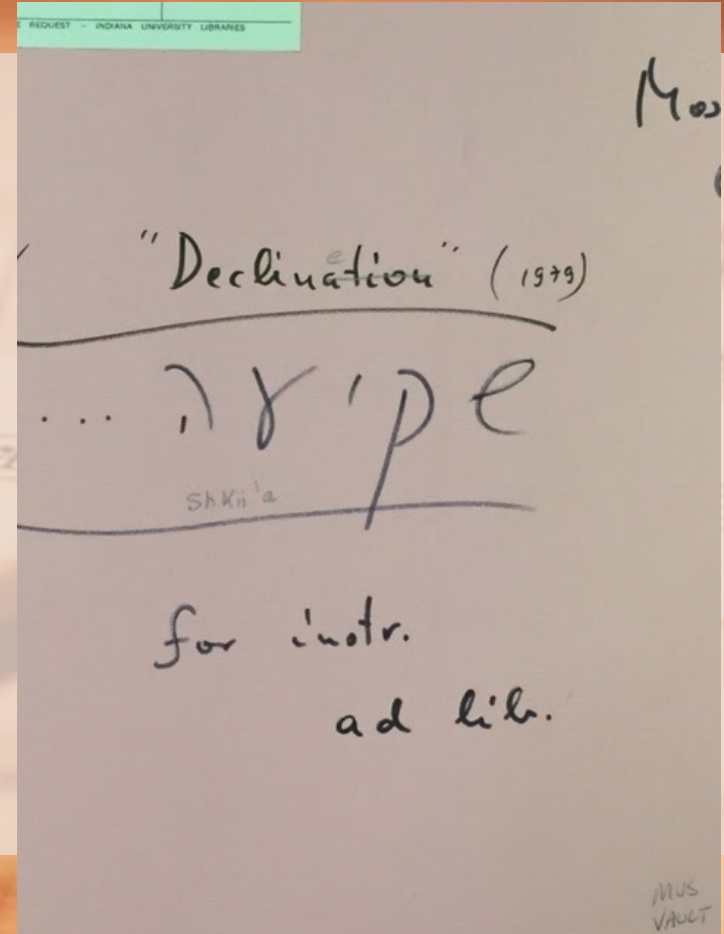 REQUEST - INDIANA UNIVERSITY LIBRARIES
"Declination" (1979)
שקיעה ...
Shkii'a
for instr.
ad lib.
MUS
VAULT